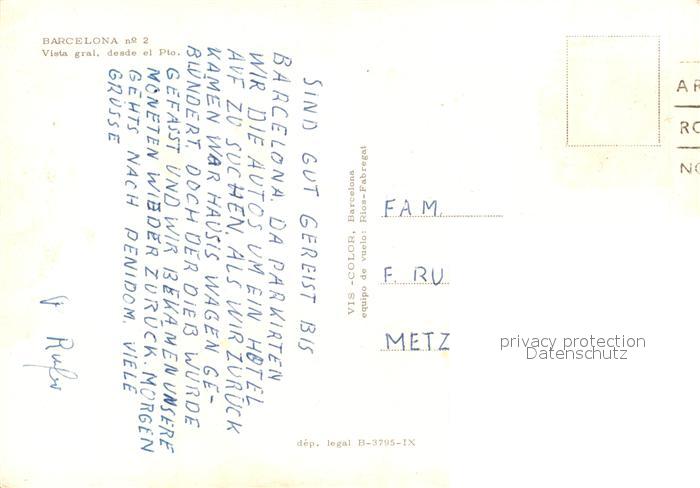 BARCELONA nº 2
Vista gral. desde el Pto.
SIND GUT GEREIST BIS
BARCELONA. DA PARKIRTEN
WIR DIE AUTOS UM EIN HOTEL
AUF ZU SUCHEN. ALS WIR ZURÜCK
KAMEN WAR HAUSIS WAGEN GE-
BLÜNDERT. DOCH DER DIEB WURDE
GEFASST UND WIR BEKAMEN UNSERE
MONETEN WIEDER ZURÜCK. MORGEN
GEHTS NACH PENIDOM. VIELE
GRÜSSE
VIS-COLOR, Barcelona
equipo de vuelo: Rios-Fabregat
FAM.
F. RU
METZ
privacy protection
Datenschutz
dép. legal B-3795-IX
AR
RO
NO